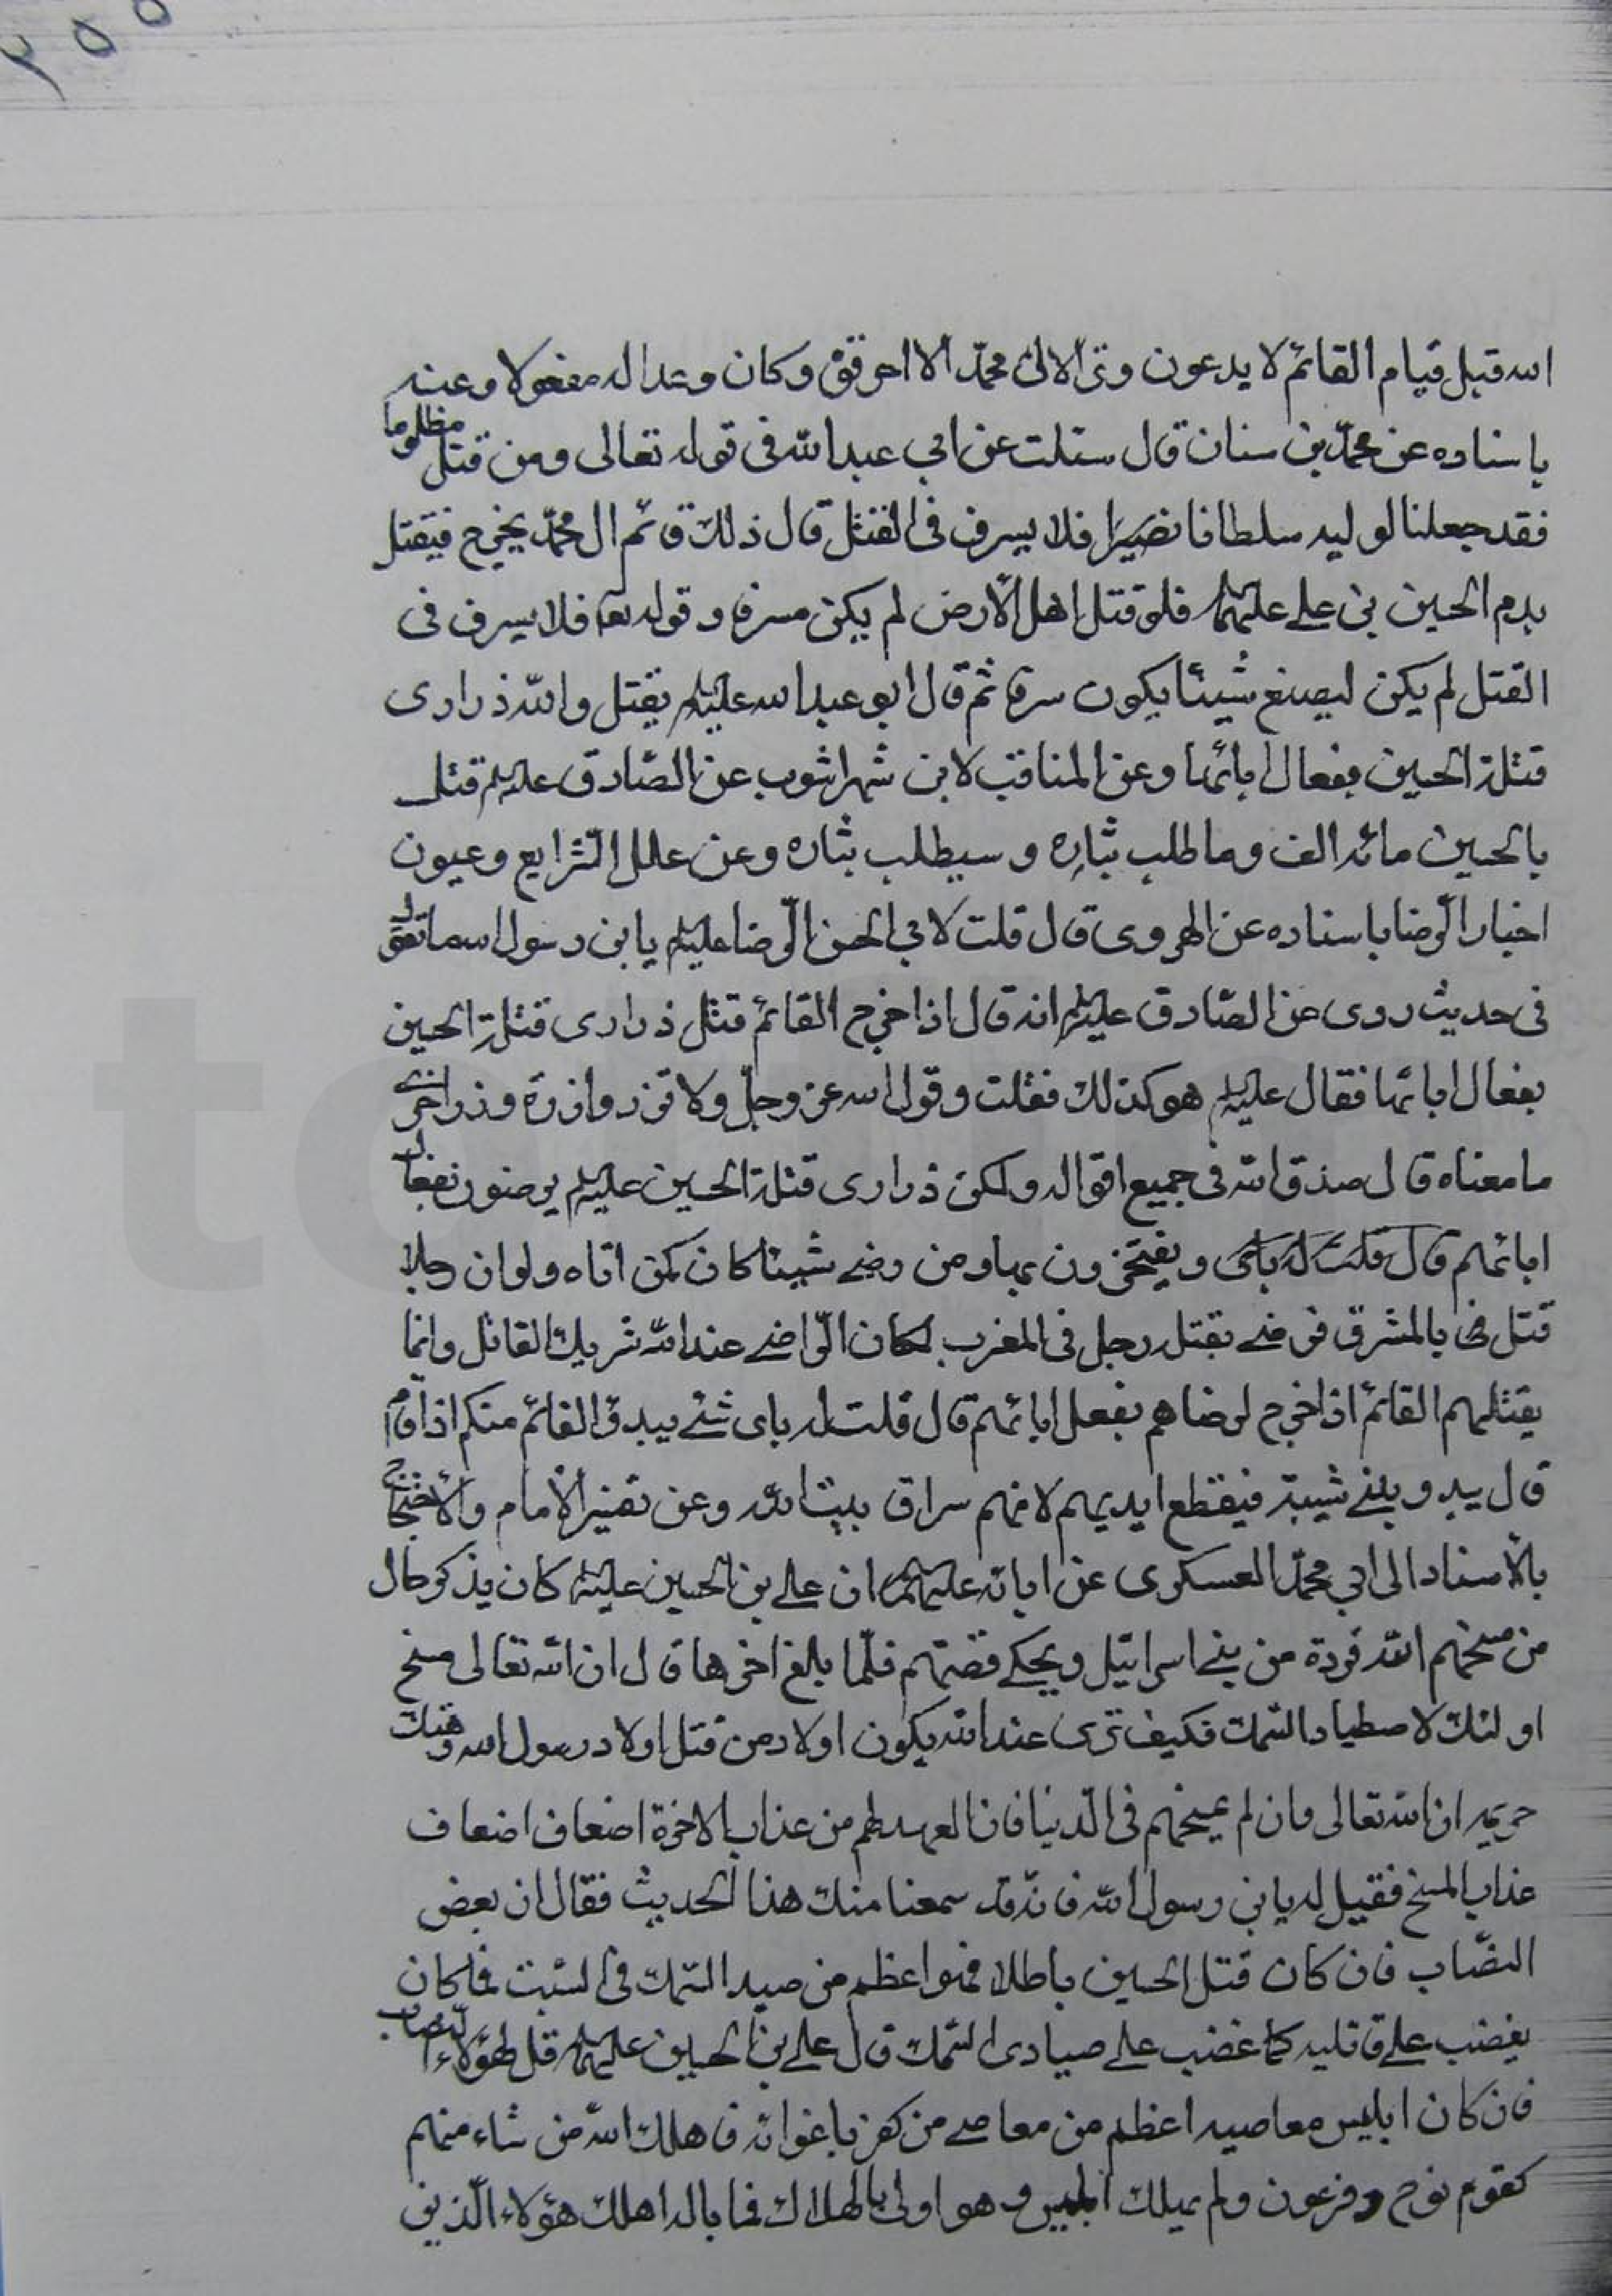 ٢٥٥
الله قبل قيام القائم لا يدعون وترا لال محمد الا احرقوه وكان وعدا لله مفعولا وعنه
باسناده عن محمد بن سنان قال سئلت عن ابي عبدالله فى قوله تعالى ومن قتل مظلوما
فقد جعلنا لوليه سلطانا نصيرا فلا يسرف فى القتل قال ذلك قائم ال محمد يخرج فيقتل
بدم الحسين بن على عليهما فلو قتل اهل الارض لم يكن مسرفا وقوله تعه فلا يسرف فى
القتل لم يكن ليصنع شيئا يكون سرفا ثم قال ابو عبدالله عليلم يقتل والله ذرارى
قتلة الحسين بفعال ابائها وعن المناقب لابن شهراشوب عن الصادق عليلم قتل
بالحسين مائة الف وما طلب بثاره وسيطلب بثاره وعن علل الشرايع وعيون
اخبار الرضا باسناده عن الهروى قال قلت لابي الحسن الرضا عليلم يابن رسول الله ما تقول
فى حديث روى عن الصادق عليلم انه قال اذا خرج القائم قتل ذرارى قتلة الحسين
بفعال ابائها فقال عليلم هو كذلك فقلت وقول الله عز وجل ولا تزر وازرة وزر اخرى
ما معناه قال صدق الله فى جميع اقواله ولكن ذرارى قتلة الحسين عليلم يرضون بفعال
ابائهم ويفتخرون بها ومن رضى شيئا كان كمن اتاه ولو ان رجلا
قتل بالمشرق فرضى بقتله رجل فى المغرب لكان الراضى عند الله شريك القاتل وانما
يقتلهم القائم اذا خرج لرضاهم بفعل ابائهم قال قلت له باى شئ يبدؤ القائم منكم اذا قام
قال يبدو ببنى شيبة فيقطع ايديهم لانهم سراق بيت الله وعن تفسير الامام والاحتجاج
بالاسناد الى ابي محمد العسكرى عن ابائه عليهم ان على بن الحسين عليلم كان يذكر حال
من مسخهم الله قردة من بنى اسرائيل ويحكى قصتهم فلما بلغ اخرها قال ان الله تعالى مسخ
اولئك لاصطياد السمك فكيف ترى عند الله يكون اولاد من قتل اولاد رسول الله وهتك
حريمه ان الله تعالى وان لم يمسخهم فى الدنيا فان المعد لهم من عذاب الاخرة اضعاف اضعاف
عذاب المسخ فقيل له يابن رسول الله فانه قد سمعنا منك هذا الحديث فقال ان بعض
النصاب فان كان قتل الحسين باطلا فهو اعظم من صيد السمك فى السبت فما كان
يغضب على قاتليه كما غضب على صيادى السمك قال على بن الحسين عليهما قل لهؤلاء النصاب
فان كان ابليس معاصيه اعظم من معاصى من كفر باغوائه فاهلك الله من شاء منهم
كقوم نوح وفرعون ولم يهلك ابليس وهو اولى بالهلاك فما باله اهلك هؤلاء الذين